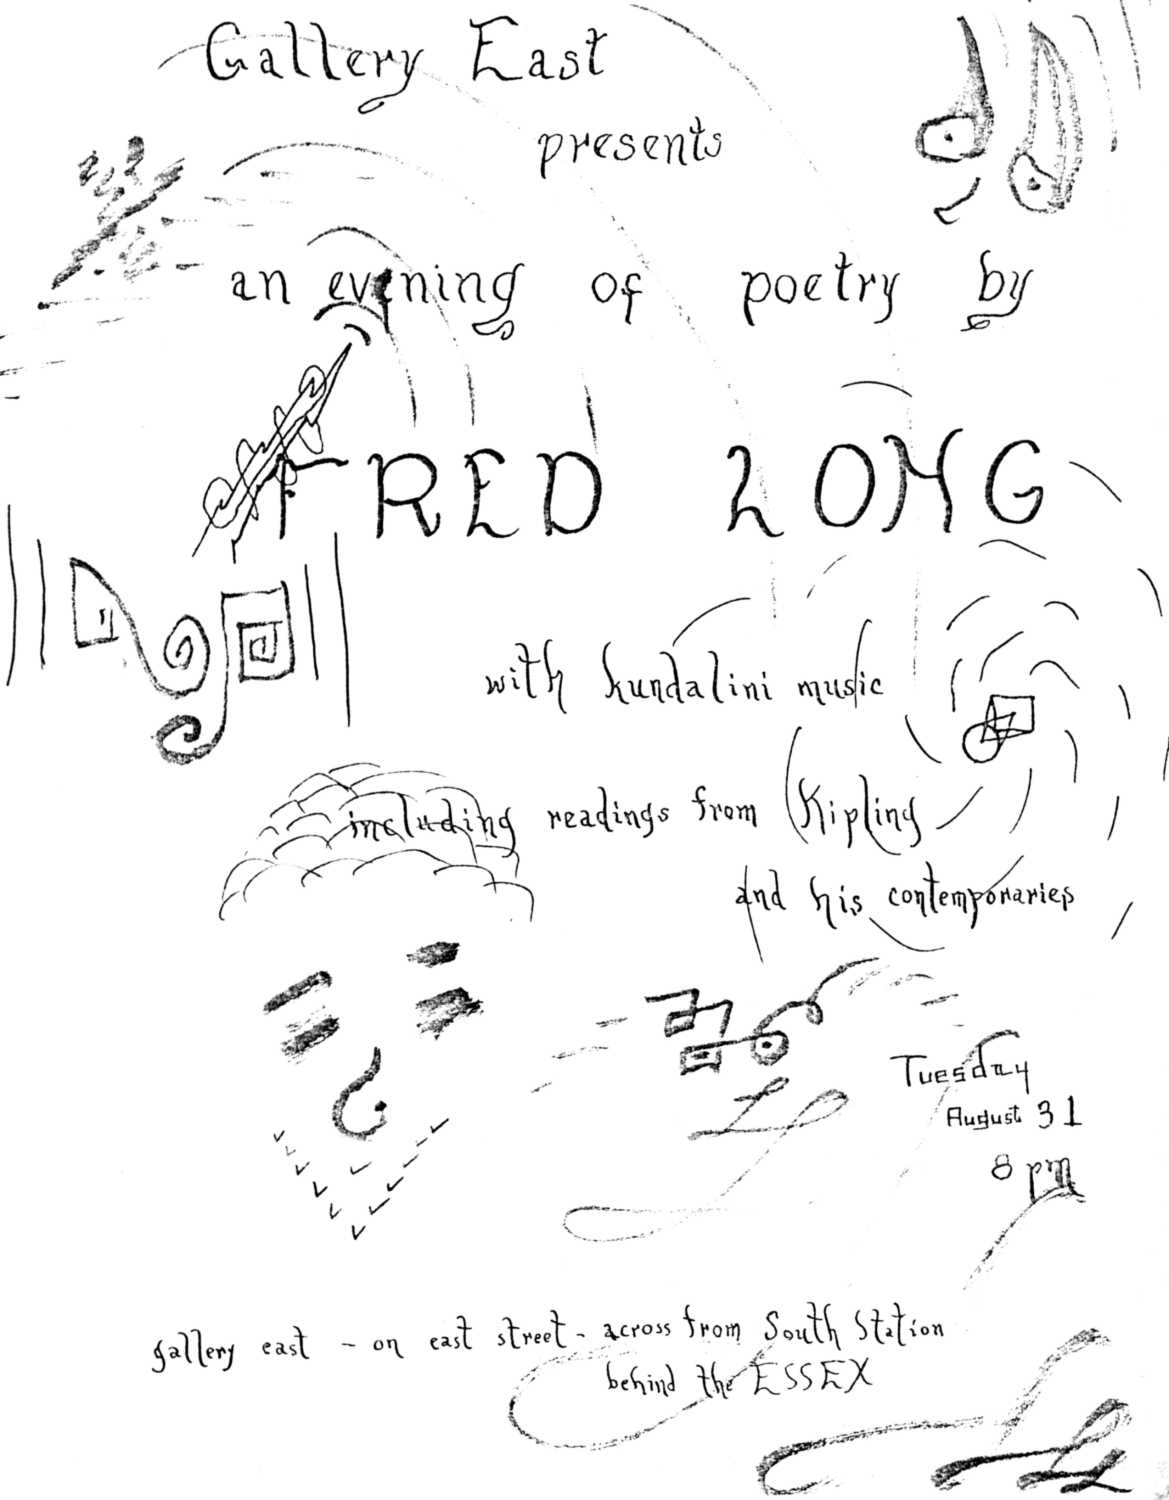 Gallery East
presents
an evening of poetry by
FRED LONG
with kundalini music
including readings from Kipling
and his contemporaries
Tuesday
August 31
8 pm
gallery east - on east street - across from South Station
behind the ESSEX